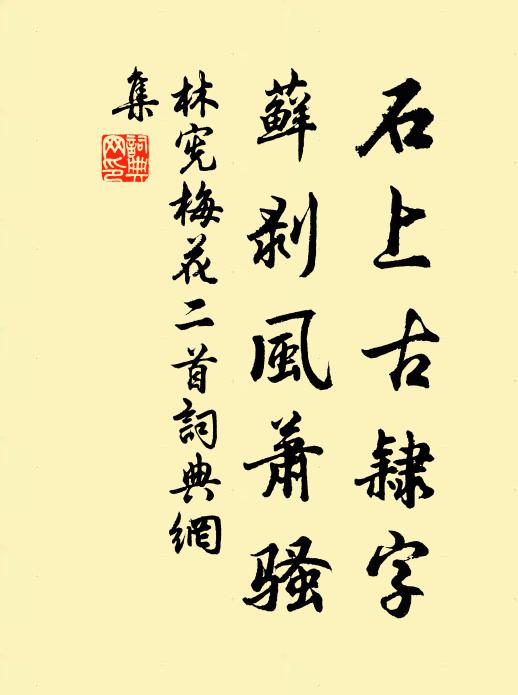 石上古隸字
蘚剥風蕭骚
林宪梅花二首詞典網
集
詞典
网印